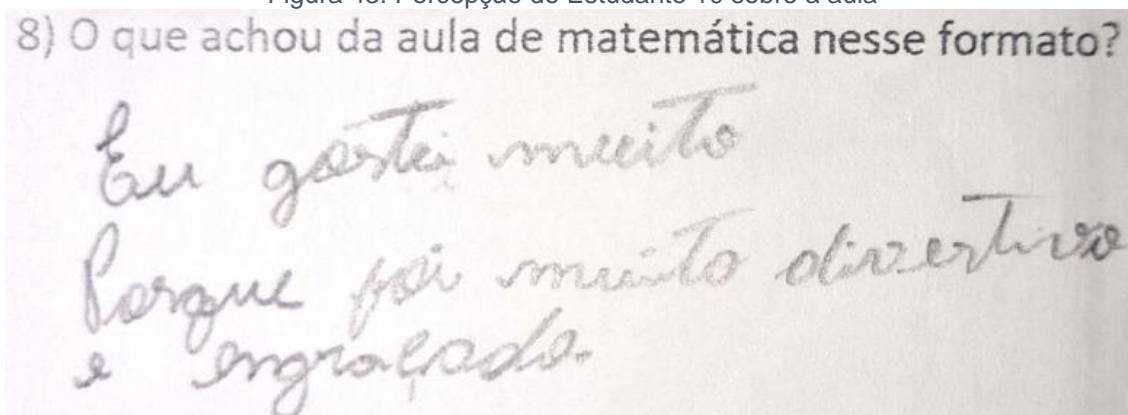 8) O que achou da aula de matemática nesse formato?
Eu gostei muito
Porque foi muito divertivo
e engraçado.